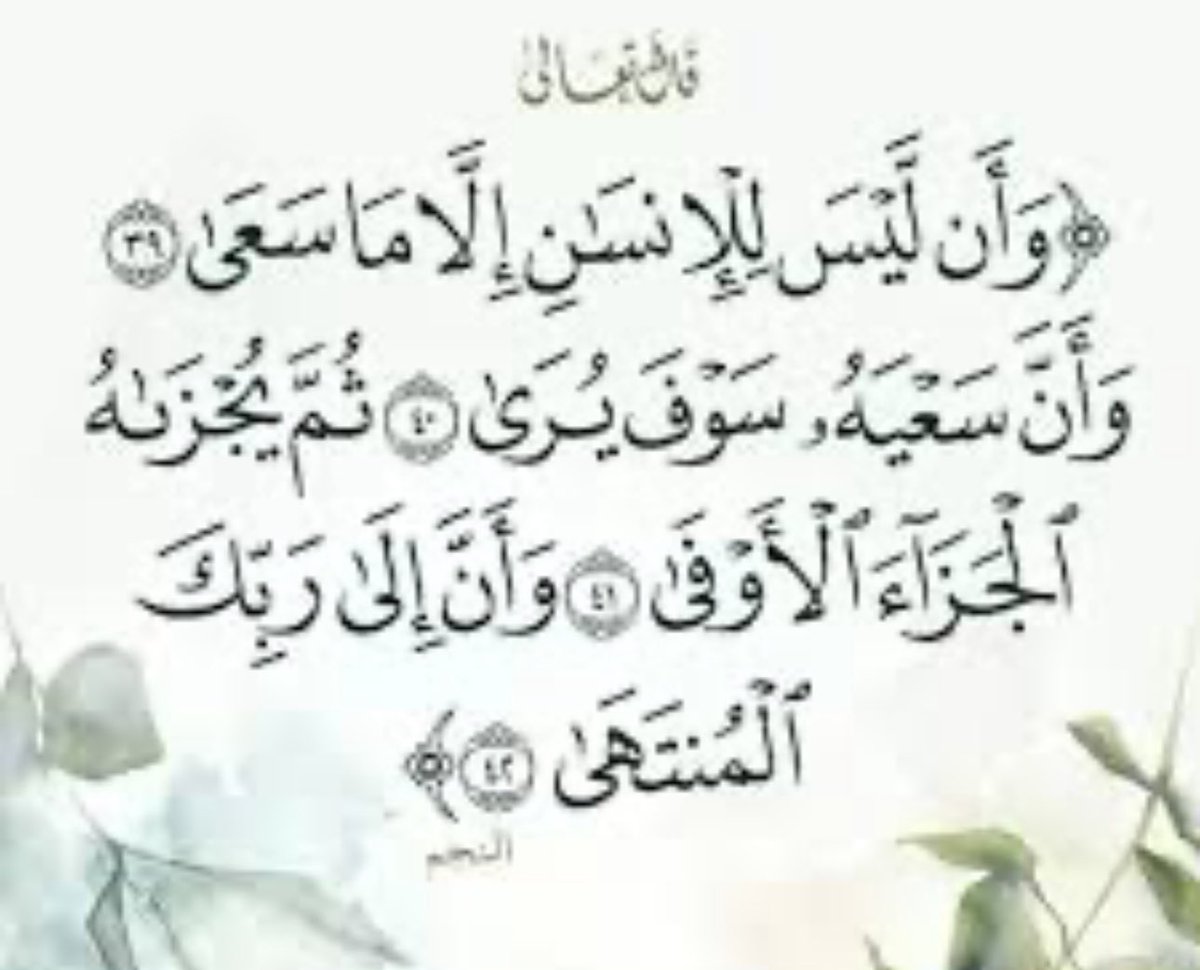 قال تعالى
﴿وَأَن لَّيْسَ لِلْإِنسَٰنِ إِلَّا مَا سَعَىٰ ٣٩
وَأَنَّ سَعْيَهُۥ سَوْفَ يُرَىٰ ٤٠ ثُمَّ يُجْزَىٰهُ
ٱلْجَزَآءَ ٱلْأَوْفَىٰ ٤١ وَأَنَّ إِلَىٰ رَبِّكَ
ٱلْمُنتَهَىٰ ٤٢﴾
النجم